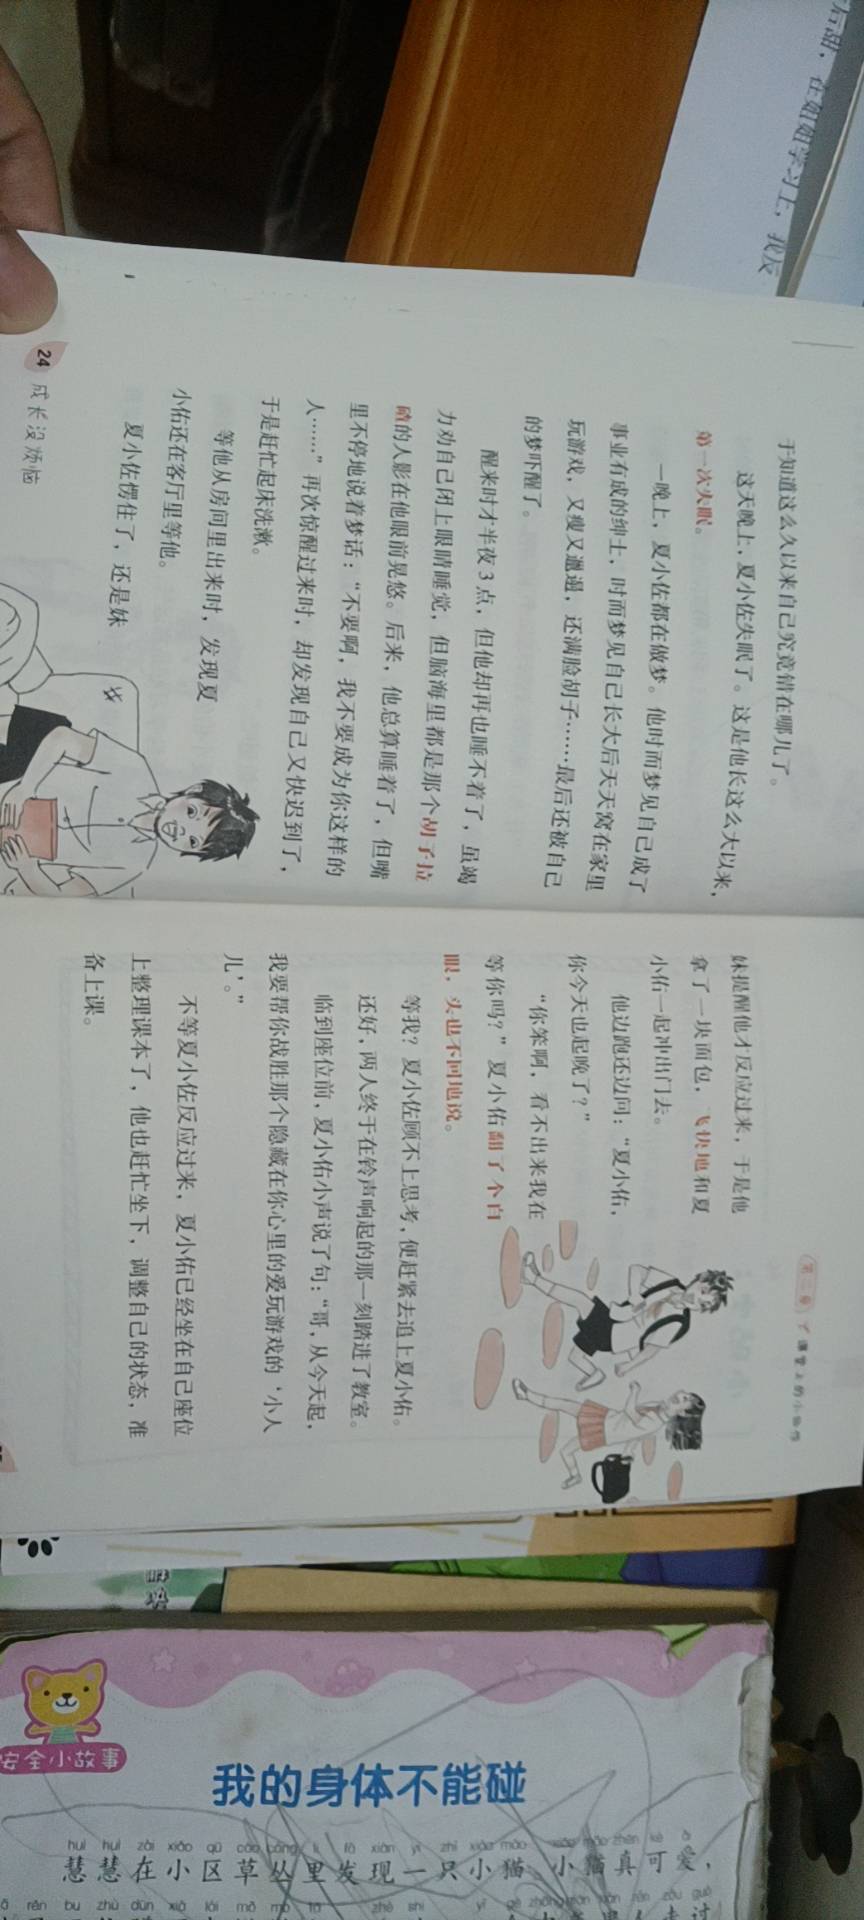 于知道这么久以来自己究竟错在哪儿了。
这天晚上，夏小佐失眠了。这是他长这么大以来，
第一次失眠。
一晚上，夏小佐都在做梦。他时而梦见自己成了
事业有成的绅士，时而梦见自己长大后天天窝在家里
玩游戏，又瘦又邋遢，还满脸胡子……最后还被自己
的梦吓醒了。
醒来时才半夜3点，但他却再也睡不着了，虽竭
力劝自己闭上眼睛睡觉，但脑海里都是那个胡子拉
碴的人影在他眼前晃悠。后来，他总算睡着了，但嘴
里不停地说着梦话：“不要啊，我不要成为你这样的
人……”再次惊醒过来时，却发现自己又快迟到了，
于是赶忙起床洗漱。
等他从房间里出来时，发现夏
小佑还在客厅里等他。
夏小佐愣住了，还是妹
24 成长没烦恼
第二章 课堂上的小动作
妹提醒他才反应过来，于是他
拿了一块面包，飞快地和夏
小佑一起冲出门去。
他边跑还边问：“夏小佑，
你今天也起晚了？”
“你笨啊，看不出来我在
等你吗？”夏小佑翻了个白
眼，头也不回地说。
等我？夏小佐顾不上思考，便赶紧去追上夏小佑。
还好，两人终于在铃声响起的那一刻踏进了教室。
临到座位前，夏小佑小声说了句：“哥，从今天起，
我要帮你战胜那个隐藏在你心里的爱玩游戏的‘小人
儿’。”
不等夏小佐反应过来，夏小佑已经坐在自己座位
上整理课本了，他也赶忙坐下，调整自己的状态，准
备上课。
安全小故事
我的身体不能碰
huì huì zài xiǎo qū cǎo cóng lǐ fā xiàn yì zhī xiǎo māo xiǎo māo zhēn kě ài
慧慧在小区草丛里发现一只小猫，小猫真可爱，